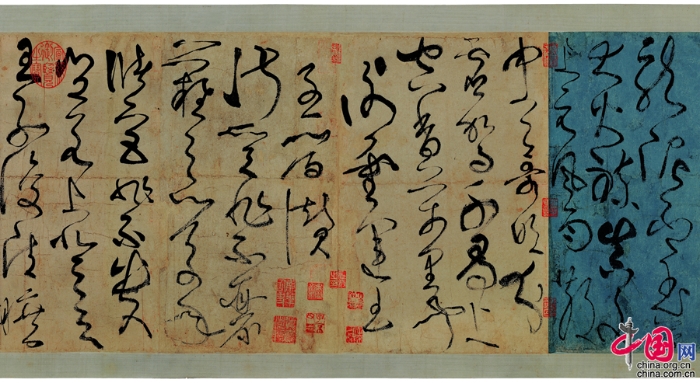 龍泥印玉簡
大火煉真文
上元風雨散
中天哥吹分
虛駕千尋上
空香萬里聞
謝靈運王
子晉贊
淑質非不麗
難之以萬年
儲宮非不貴
豈若上登天
王子復清曠
中国网
china.org.cn
china.com.cn